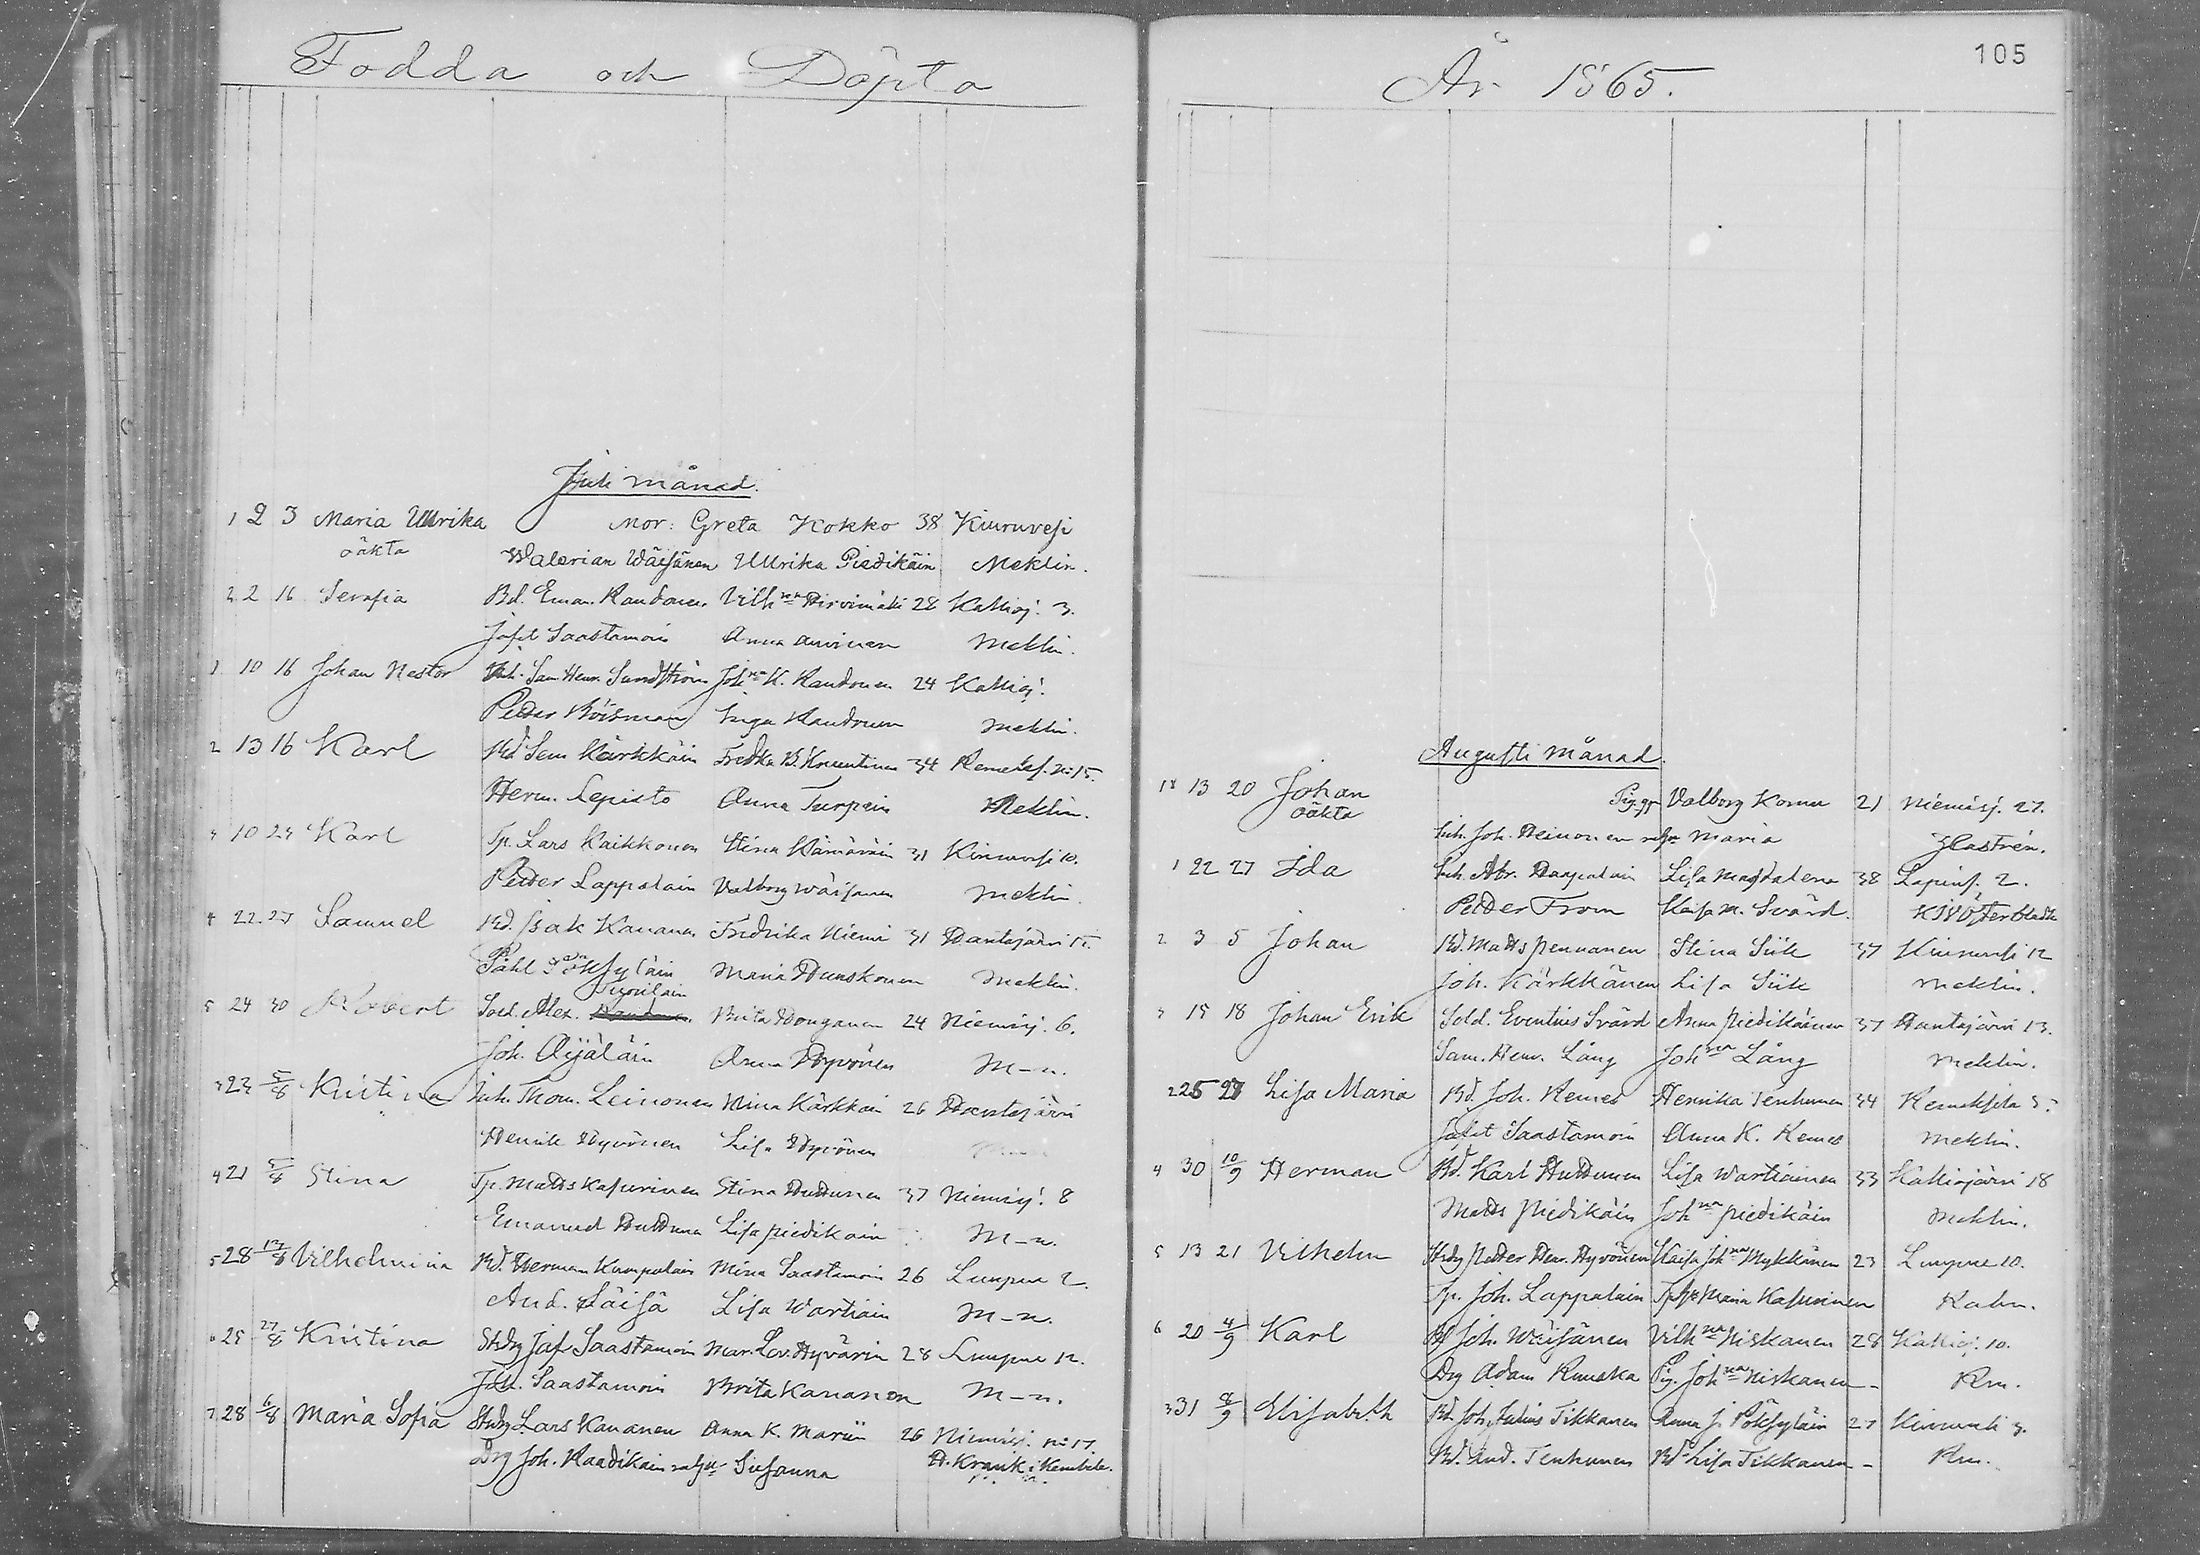 Födda och Döpta
Juli månad.
1 2 3 Maria Ullrika Mor: Greta Kokko 38 Kiuruvesi
oäkta Walerian Wäisänen Ullrika Piedikäin Meklin.
2 2 16 Serafia Bd. Eman. Raudonen Vilh:na Hirvimäki 28 Kallioj. 3.
Jafet Saastamoin Anna Meklin.
1 10 16 Johan Nestor Inh. Sam Henr. Sundström Joh:na K. Raudonen 24 Kallioj.
Petter Böisman Inga Raudonen Meklin.
2 13 16 Karl Bd. Sem Kärkkäin Fredka B. Knuutinen 34 Remeksf. N:o 15.
Herm. Lepistö Anna Turpein Meklin.
3 10 23 Karl Tp. Lars Kaikkonen Stina Kämäräin 31 Kiuruvesi 10.
Petter Lappalain Valborg Wäisänen Meklin.
4 22 23 Samuel Bd. Isak Kananen Fredrika Niemi 31 Hautajärvi 15.
Påhl Pöksyläin Maria Huuskonen Meklin.
5 24 30 Robert Sold. Alex. Brita Honganen 24 Niemisj. 6.
Joh. Äijäläin Anna Hyvönen M-n.
3 23 5/8 Kristina Inh. Thom. Leinonen Mina Kärkkäin 26 Hautajärvi
Henrik Hyvönen Lisa Hyvönen
4 21 5/8 Stina Tp. Matts Kasurinen Stina Huttunen 37 Niemisj. 8
Emanuel Huttunen Lisa Piedikäin M-n.
5 28 13/8 Vilhelmina Bd. Herman Kumpulain Mina Saastamoin 26 Luupue 2.
And. Säisä Lisa Wartiain M-n.
6 25 27/8 Kristina Stbdg Jaf Saastamoin Mar. Lov. Hyvärin 28 Luupue 12.
Joh. Saastamoin Brita Kananen M-n.
7 28 6/8 Maria Sofia Stbdg Lars Kananen Anna K. Mariin 26 Niemisj. N:o 17.
Drg Joh. Raadikain Susanna H. Krank i Kembele.
År 1865.
105
Augusti månad.
13 20 Johan Pig. Valborg Komu 21 Niemisj. 27.
oäkta Inh. Joh. Heinonen Maria Zhastrén.
1 22 27 Ida Inh. Abr. Haapalain Lisa Magdalena 38 Lapins. 2.
Petter From Kaisa M. Svärd Österbladh
2 3 5 Johan Bd. Matts Pennanen Stina Siik 37 Kiuruvesi 12
Joh. Kärkkänen Lisa Siik Meklin.
3 15 18 Johan Erik Sold. Eventius Svärd Anna Piedikäinen 37 Hautajärvi 13.
Sam. Henr. Lång Joh:na Lång Meklin.
2 25 27 Lisa Maria Bd. Joh. Remes Henrika Tenhunen 34 Remeksela 5.
Jafet Saastamoin Anna K. Remes Meklin.
4 30 10/9 Herman Bd. Karl Huttunen Lisa Wartiainen 33 Kalliojärvi 18
Matts Piedikäin Joh:na Piedikäin Meklin.
5 13 21 Vilhelm Stbdg Petter Henr. Hyvönen Kaisa Joh:na Mykkänen 23 Luupue 10.
Tp. Joh. Lappalain Maria Kasurinen Rahm.
6 20 4/9 Karl Bd Joh. Wäisänen Vilh:na Niskanen 28 Kallioj. 10.
Drg Adam Ruuska Pig. Joh:na Niskanen - Rm.
3 31 8/9 Elisabeth Bd. Joh. Julius Tikkanen Anna J. Pöksyläin 27 Kiuruvesi 3.
Bd. And. Tenhunen Bd. Lisa Tikkanen - Rm.